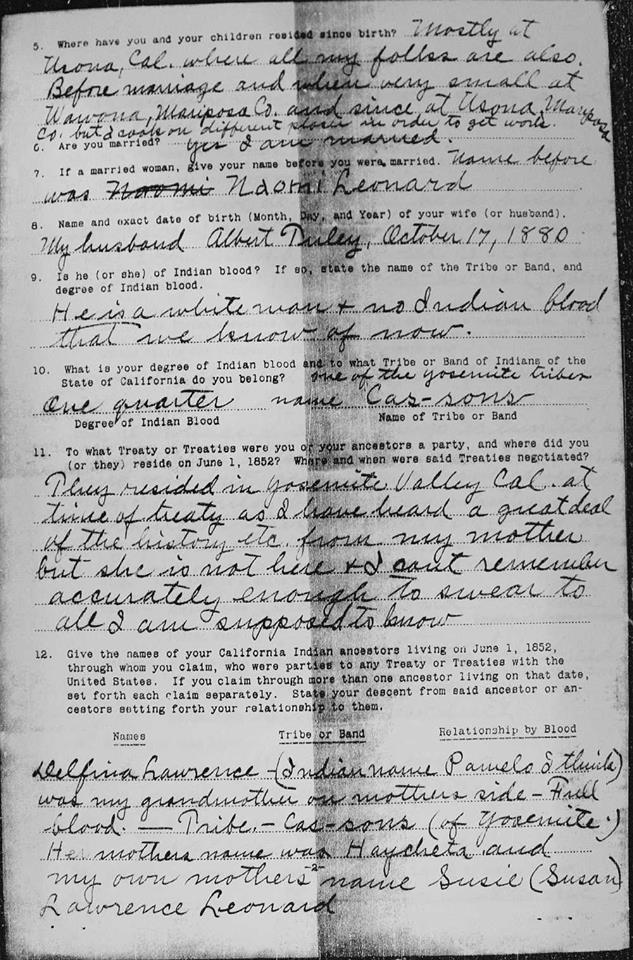 5. Where have you and your children resided since birth? Mostly at
Usona, Cal. where all my folks are also.
Before marriage and when very small at
Wawona, Mariposa Co. and since at Usona, Mariposa
Co. but I cook on different places in order to get work.
6. Are you married? Yes I am married.
7. If a married woman, give your name before you were married. Name before
was Naomi Naomi Leonard
8. Name and exact date of birth (Month, Day, and Year) of your wife (or husband).
My husband Albert October 17, 1880
9. Is he (or she) of Indian blood? If so, state the name of the Tribe or Band, and
degree of Indian blood.
He is a white man + no Indian blood
that we know of now.
10. What is your degree of Indian blood and to what Tribe or Band of Indians of the
State of California do you belong? one of the Yosemite tribes
One quarter name Cas-sons
Degree of Indian Blood Name of Tribe or Band
11. To what Treaty or Treaties were you or your ancestors a party, and where did you
(or they) reside on June 1, 1852? Where and when were said Treaties negotiated?
They resided in Yosemite Valley Cal. at
time of treaty as I have heard a great deal
of the history etc. from my mother
but she is not here + I cant remember
accurately enough to swear to
all I am supposed to know
12. Give the names of your California Indian ancestors living on June 1, 1852,
through whom you claim, who were parties to any Treaty or Treaties with the
United States. If you claim through more than one ancestor living on that date,
set forth each claim separately. State your descent from said ancestor or an-
cestors setting forth your relationship to them.
Names Tribe or Band Relationship by Blood
Delfina Lawrence - (Indian name Pamelo
was my grandmother on mothers side - Full
blood. - Tribe. - Cas-sons (of Yosemite.)
Her mothers name was Haycheta and
my own mothers name Susie (Susan)
-2-
Lawrence Leonard